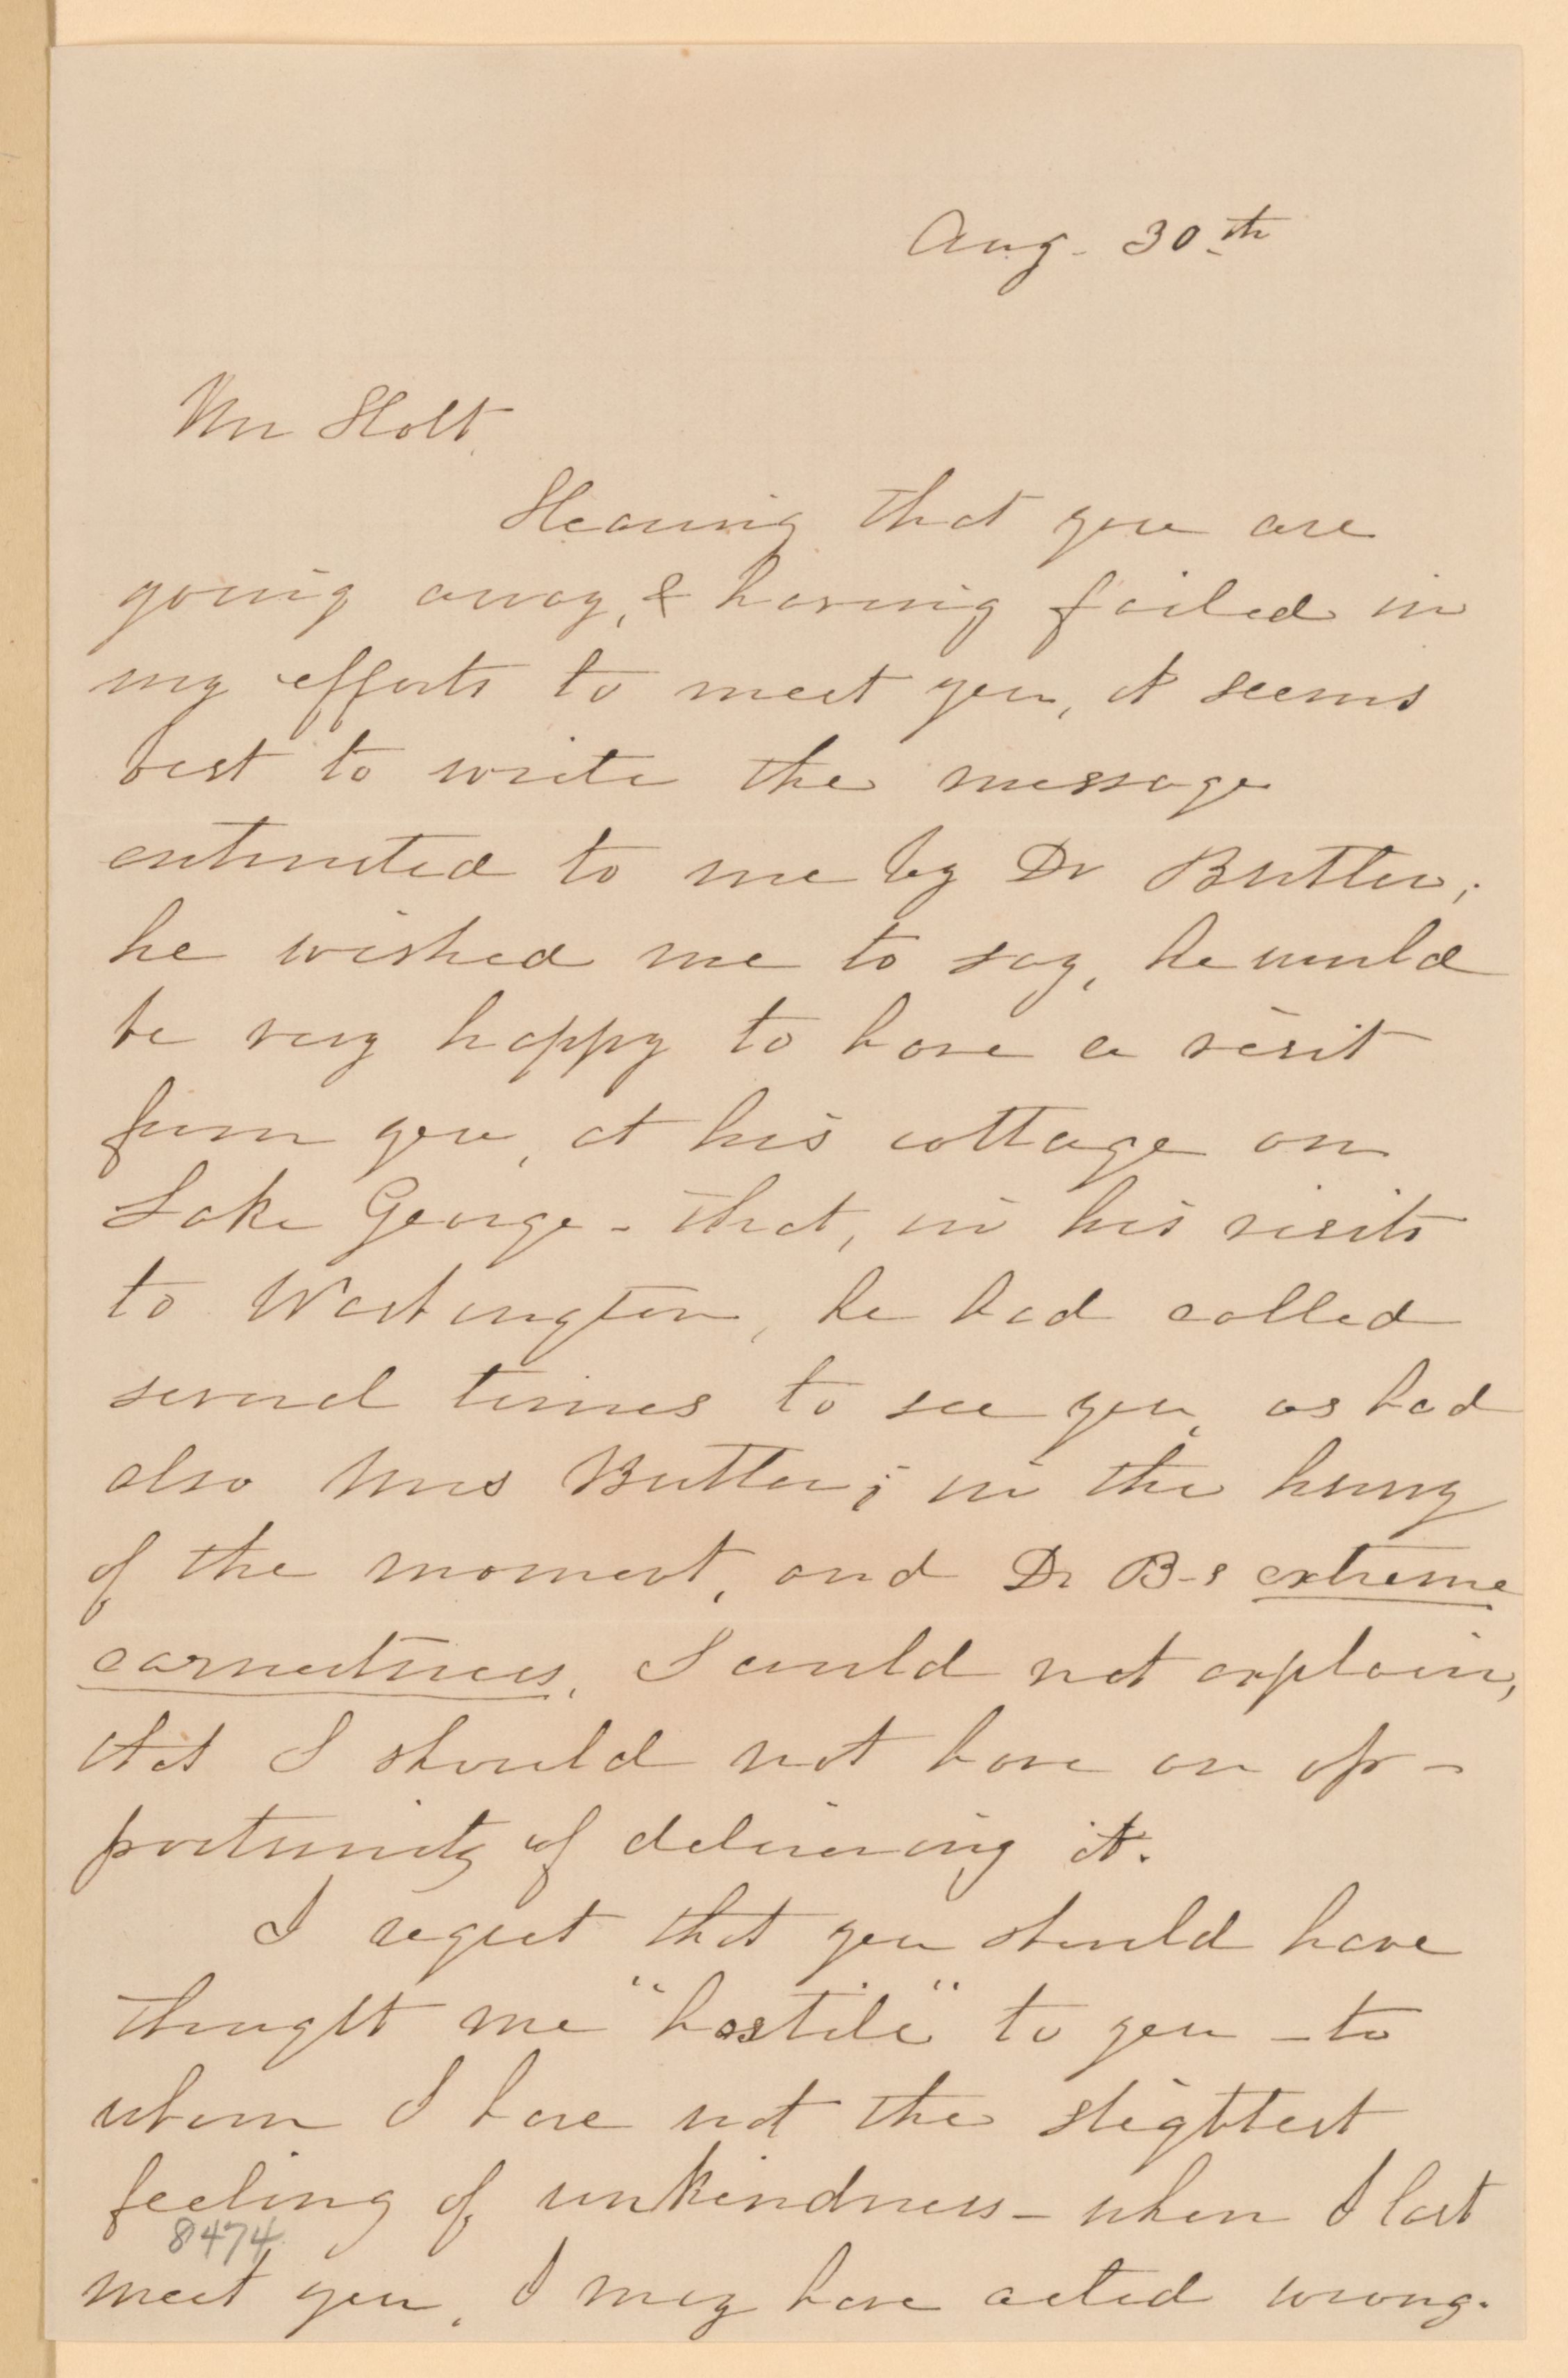 Aug. 30th
Mr Holt.
Hearing that you are
going away, & having failed in
my efforts to meet you, it seems
best to write the message
entrusted to me by Dr Butler;
he wished me to say, he would
be very happy to have a visit
from you, at his cottage on
Lake George - that, in his visits
to Washington, he had called
several times to see you, as had
also Mrs Butler; in the hurry
of the moment, and Dr B-s extreme
earnestness, I could not explain,
that I should not have an op-
portunity of delivering it.
I regret that you should have
thought me "hostile" to you - to
whom I have not the slightest
feeling of unkindness - when I last
meet you, I may have acted wrong.
8474